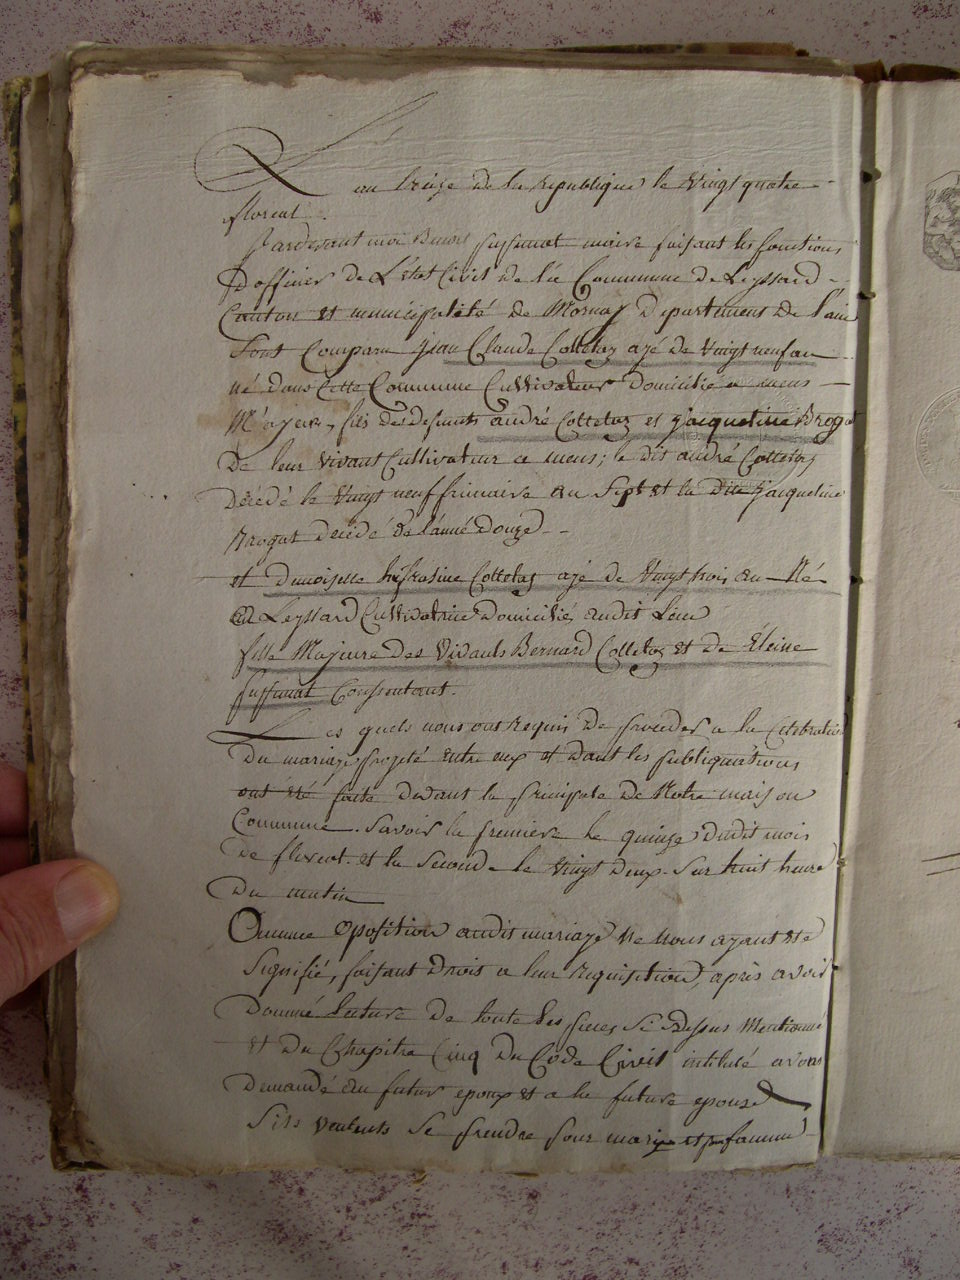 L an treize de la republique le vingt quatre
floreal.
Pardevant moi Benoit sufsinat maire faisant les fonctions
D'officier de L'état Civil de la Commune de Leyssard
Canton et municipalité de Mornay Departement de l'ain
Sont Comparu jean Claude Colletaz agé de vingt neuf an
né dans Cette Commune Cultivateur Domicilié a mens
M'ajeur, fils des defunts andré Colletaz et jacqueline Brogat
De leur vivant Cultivateur a mens; le dit andré Colletaz
Décédé le vingt neuf frimaire an Sept et la dite jacqueline
Brogat Décédé de l'anné Douze
et Dmoiselle Colletaz agé de vingt trois an Né
a Leyssard Cultivatrice Domicilié, audit Lieu
fille Majeure des vivants Bernard Colletaz et de Eleine
sufsinat Consentant.
Les quels nous ont Requis De proceder a la Celebration
Du mariage projeté entre eux et Dont les publiquations
ont été faite devant la principale De Notre maison
Commune. Savoir la premiere le quinze Dudit mois
de floreal. et la Seconde le vingt Deux. Sur huit heure
Du matin
Oucunne Oposition audit mariage ne nous ayant été
Signifié, faisant Droit a leur Requisition, après avoir
Donné lecture De toute les pieces Si Dessus Mentionné
et Du Chapitre Cinq Du Code Civil intitulé avons
Demandé au futur epoux et a la future epouse
Sils veulents Se prendre pour mari et pour famme